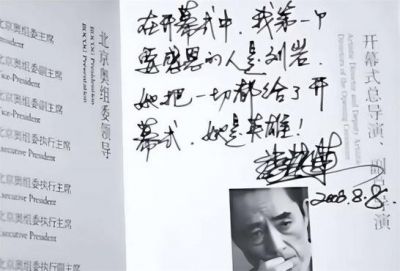 北京奥组委主席
President
北京奥组委副主
Vice-President
北京奥组委副主
Vice-President
北京奥组委执行主席
Executive President
北京奥组委执行主席
Executive President
北京奥组委执行主席
Executive President
北京奥组委执行主席
北京奥组委领导
BOCOG
BOCOG
在开幕式中，我第一个
要感恩的人是刘岩。
她把一切都给了开
幕式，她是英雄！
2008.8.8.
开幕式总导演、副总导演
Artistic Director and Deputy Artistic
Directors of the Opening Ceremony